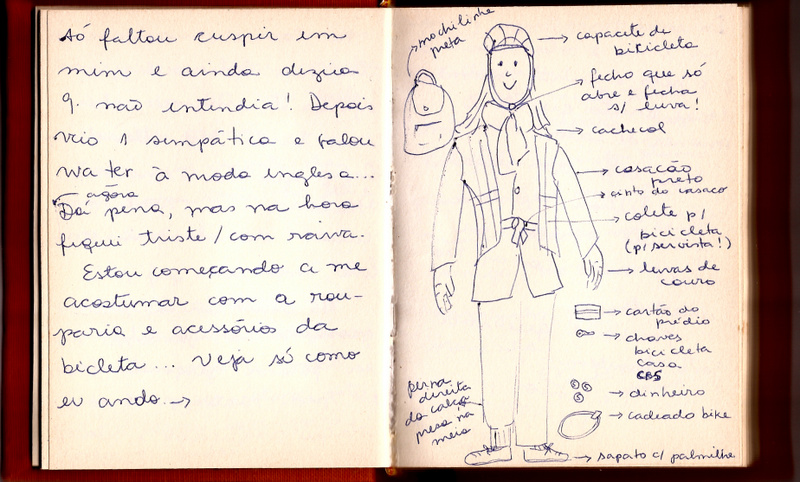 só faltou cuspir em
mim e ainda dizia
q. não entendia! Depois
veio 1 simpática e falou
water à moda inglesa...
agora
Dá pena, mas na hora
fiquei triste/com raiva.
Estou começando a me
acostumar com a rou-
paria e acessórios da
bicleta... Veja só como
eu ando →
mochilinha
preta
capacete de
bicicleta
fecho que só
abre e fecha
s/ luva!
cachecol
casacão
preto
cinto do casaco
colete p/
bicicleta
(p/ ser vista!)
luvas de
couro
cartão do
prédio
chaves
bicicleta
casa
dinheiro
cadeado bike
perna
direita
da calça
presa na
meia
sapato c/ palmilha